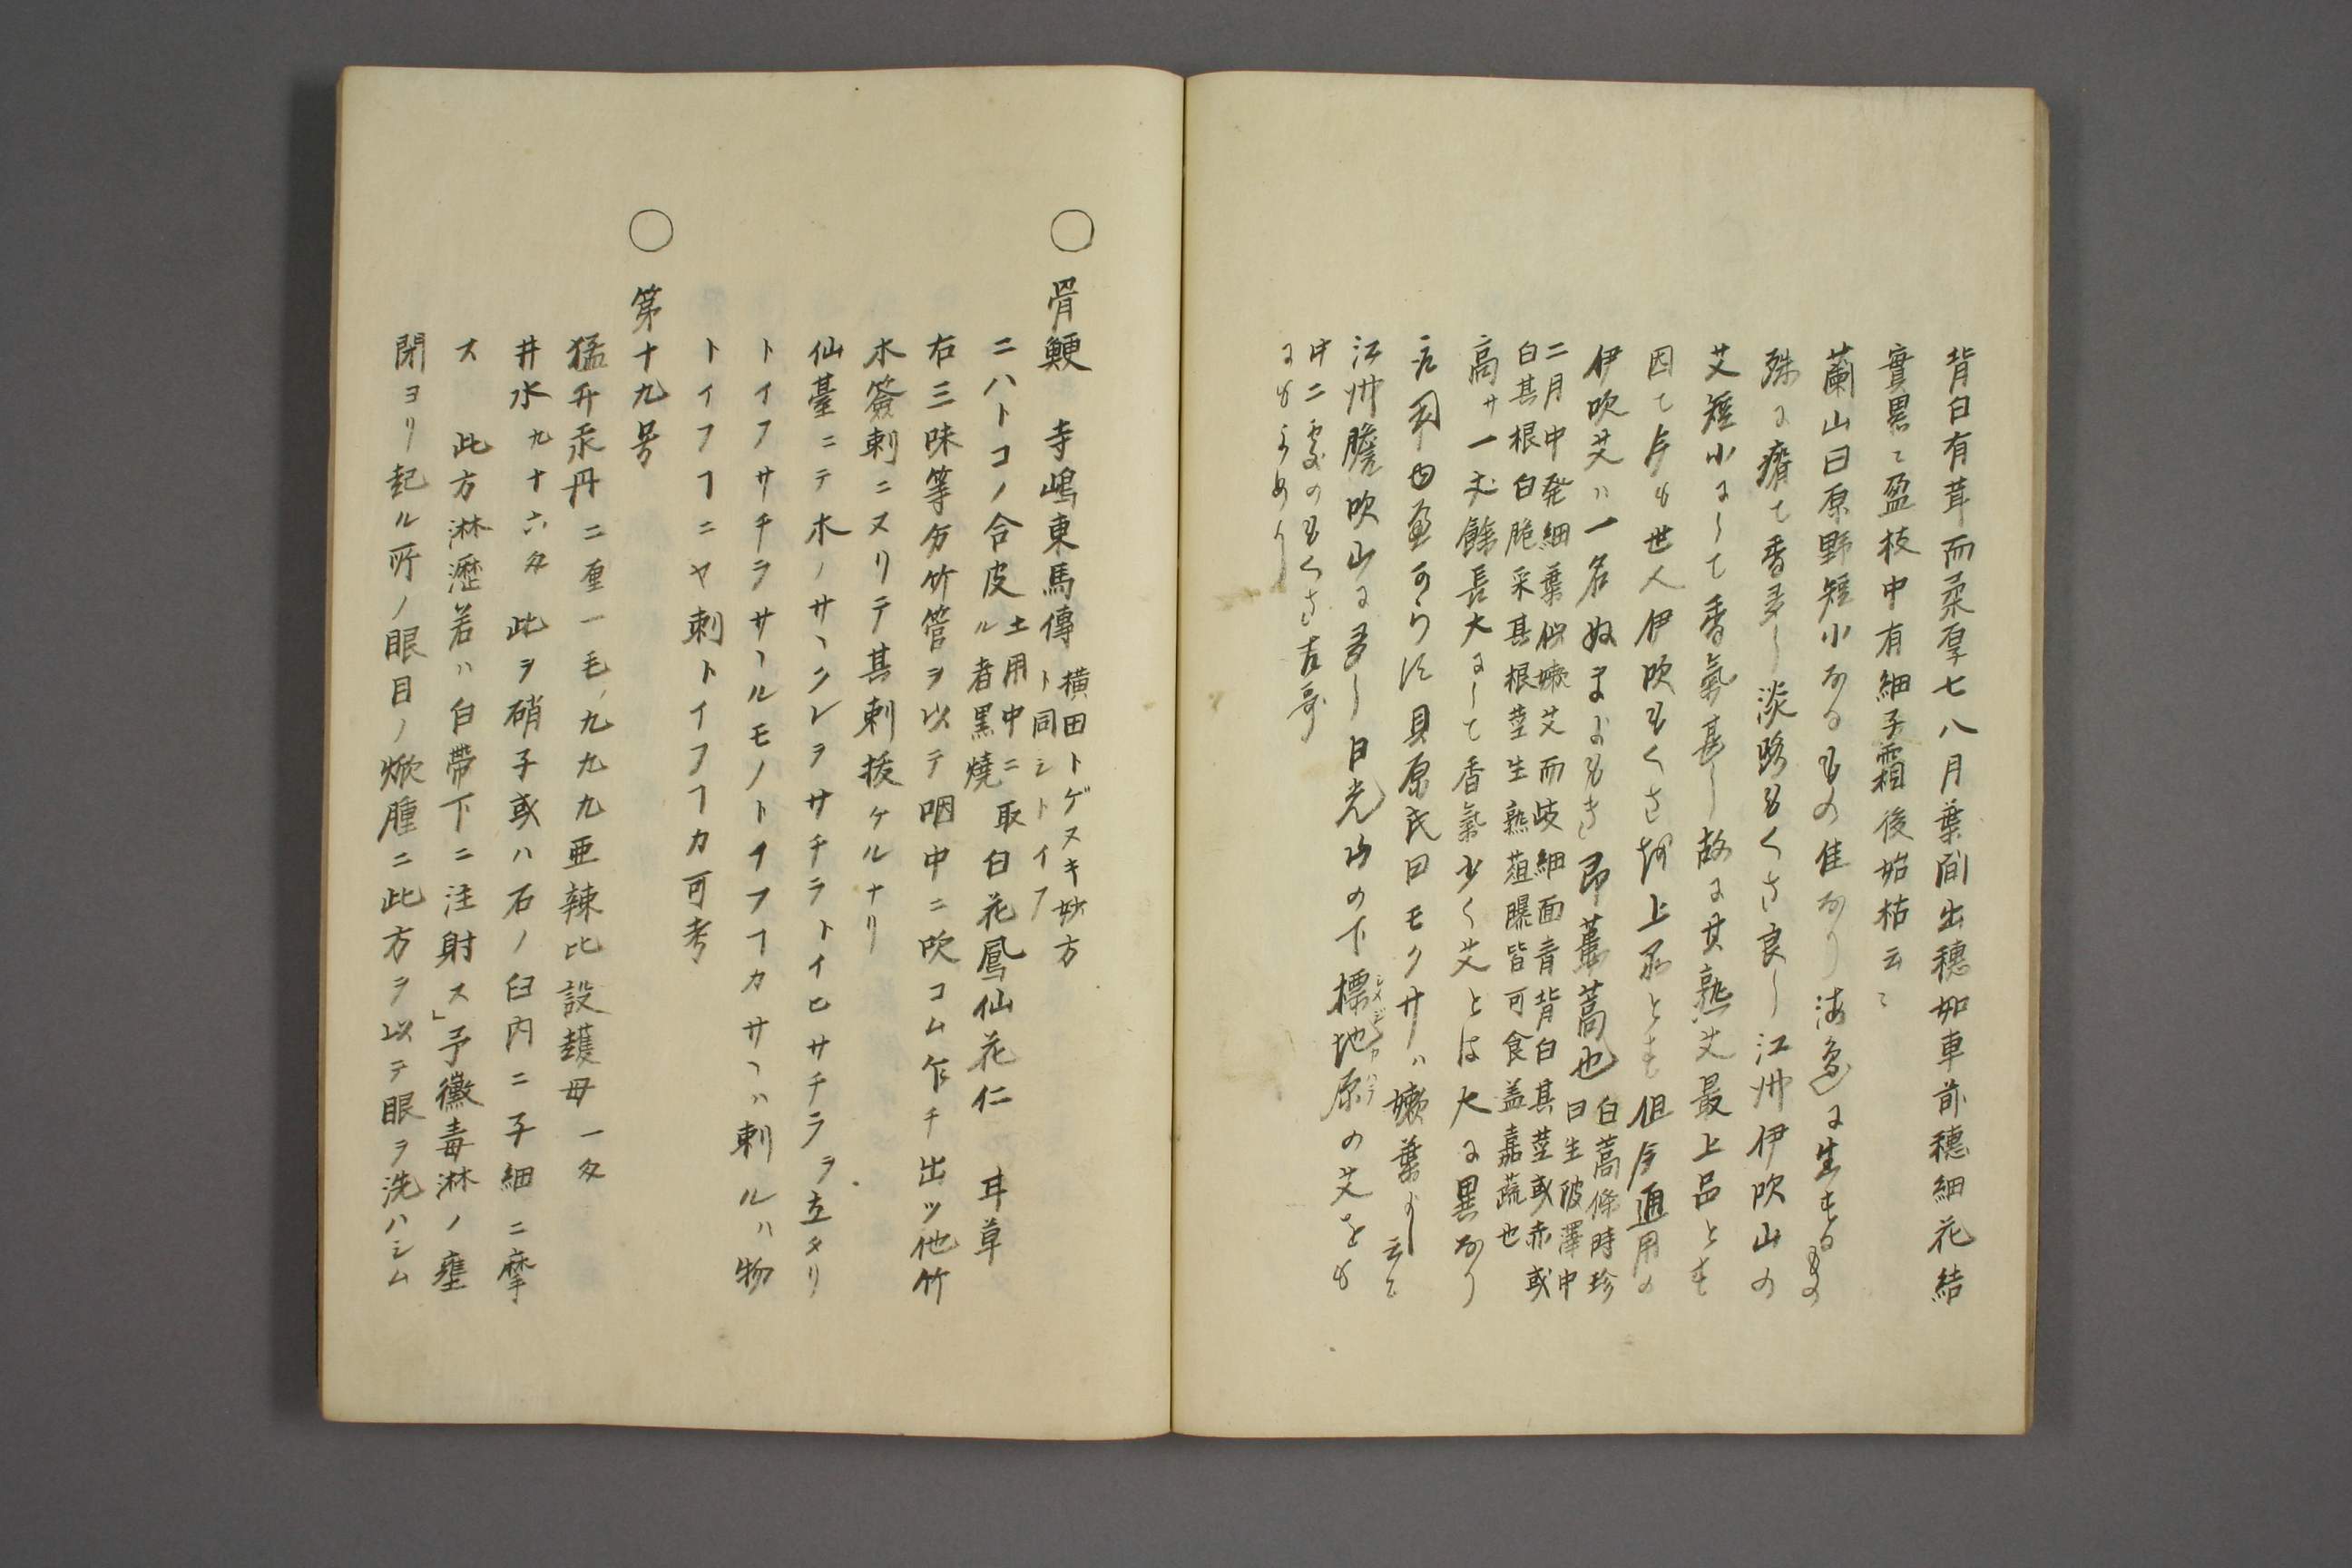 背白有茸而柔厚七八月葉間出穗如車前穗細花結
實累〻盈枝中有細子霜後始枯云〻
蘭山曰原野短小なるもの佳なり海邊に生するもの
殊に瘠て香多し淡路もくさ良し江州伊吹山の
艾短小にして香氣甚し故に其熟艾最上品とす
因て今も世人伊吹もくさを上品とす但今通用の
伊吹艾ハ一名ぬまよもき即蔞蒿也 白蒿條時珍
曰生陂澤中
二月中発細葉似嫩艾而岐細面青背白其茎或赤或
白其根白脆采其根茎生熟葅曝皆可食盖嘉蔬也
高サ一丈餘長大にして香氣少く艾とは大に異なり
貝原氏曰モクサハ嫩葉よし云〻
江州膽吹山に多し日光山の下標地原の艾をも
シメヂカハラ
中二處のもくさ古哥
にもよめり
○骨鯁 寺嶋東馬傳 横田トゲヌキ妙方
ト同シトイフ
ニハトコノ合皮 土用中ニ取
ル者黒焼 白花鳳仙花仁 耳草
右三味等分竹管ヲ以テ咽中ニ吹コム乍チ出ツ他竹
木簽刺ニヌリテ其刺抜ケルナリ
仙臺ニテ木ノサヽクレヲサチラトイヒサチラヲ立タリ
トイフサチラサヽルモノトイフヿカサヽハ刺ルハ物
トイフヿニヤ刺トイフヿカ可考
○第十九号
猛升汞丹 二厘一毛、九九九亜辣比設護毋一匁
井水 九十六匁 此ヲ硝子或ハ石ノ臼内ニ子細ニ摩
ス 此方淋瀝若ハ白帯下ニ注射ス」予黴毒淋ノ壅
閉ヨリ起ル所ノ眼目ノ焮腫ニ此方ヲ以テ眼ヲ洗ハシム